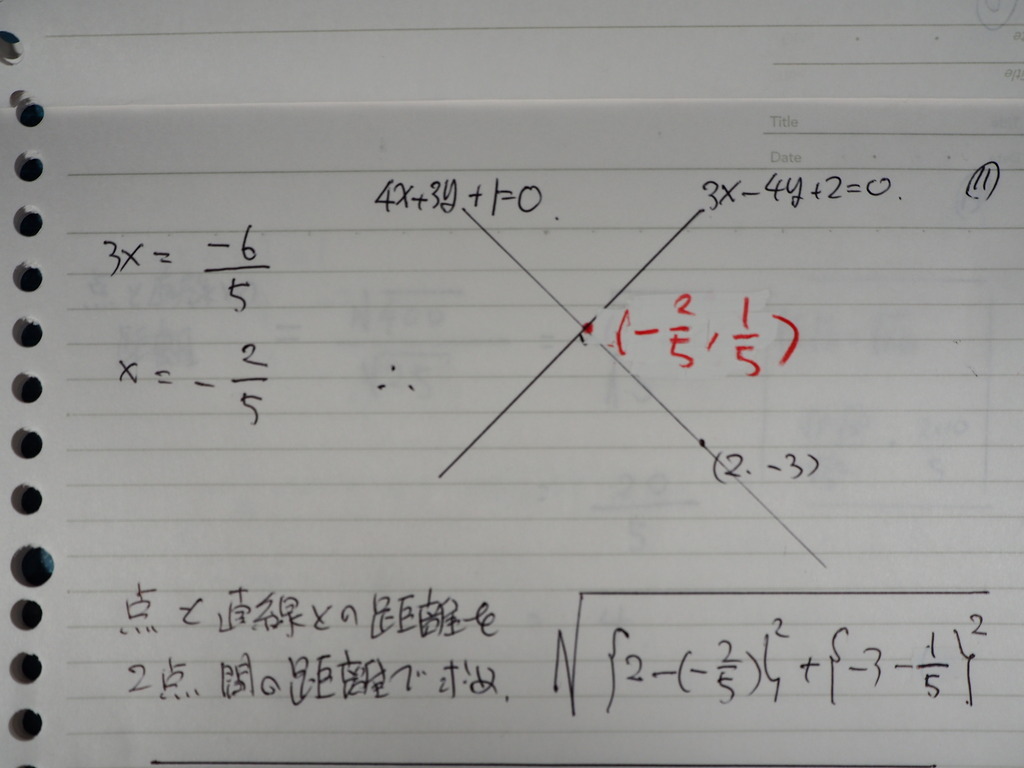 Title
Date
(11)
4x+3y+1=0.
3x-4y+2=0.
3x = -6/5
x = -2/5
∴
(-2/5, 1/5)
(2. -3)
点と直線との距離を
2点間の距離で求め、
√{2-(-2/5)}²+{-3-1/5}²